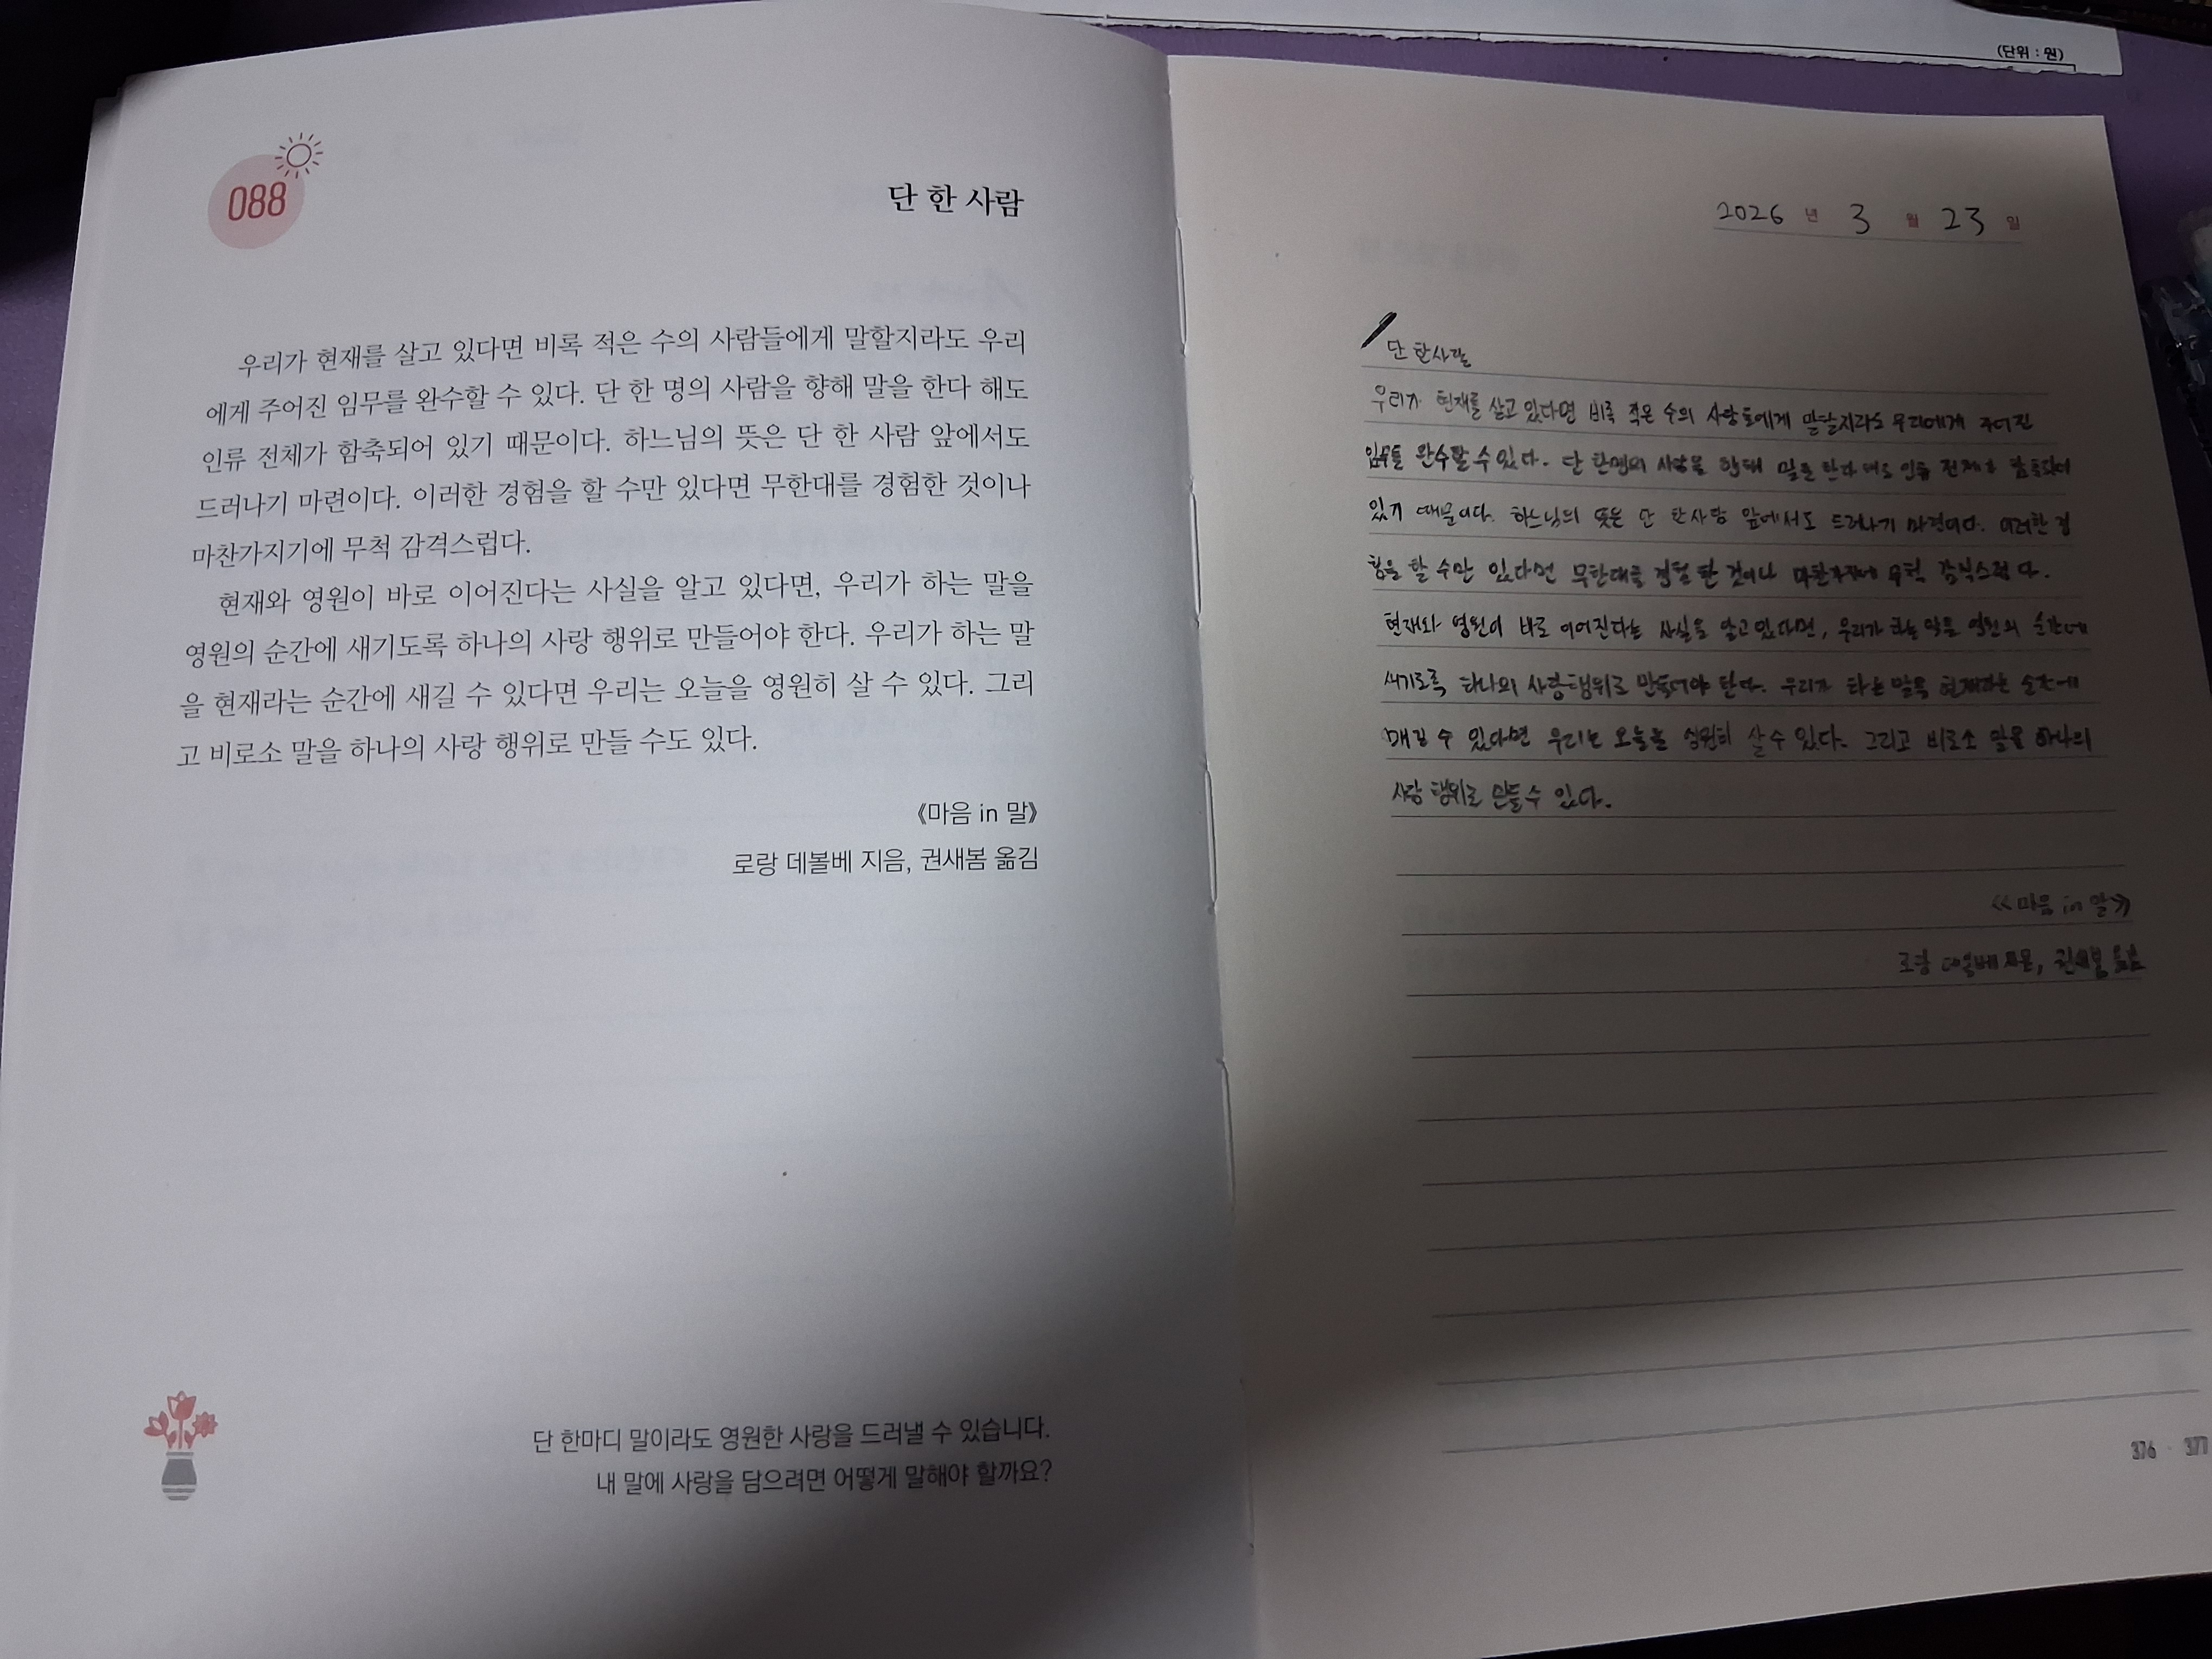 (단위 : 원)
088
단 한 사람
우리가 현재를 살고 있다면 비록 적은 수의 사람들에게 말할지라도 우리
에게 주어진 임무를 완수할 수 있다. 단 한 명의 사람을 향해 말을 한다 해도
인류 전체가 함축되어 있기 때문이다. 하느님의 뜻은 단 한 사람 앞에서도
드러나기 마련이다. 이러한 경험을 할 수만 있다면 무한대를 경험한 것이나
마찬가지기에 무척 감격스럽다.
현재와 영원이 바로 이어진다는 사실을 알고 있다면, 우리가 하는 말을
영원의 순간에 새기도록 하나의 사랑 행위로 만들어야 한다. 우리가 하는 말
을 현재라는 순간에 새길 수 있다면 우리는 오늘을 영원히 살 수 있다. 그리
고 비로소 말을 하나의 사랑 행위로 만들 수도 있다.
《마음 in 말》
로랑 데볼베 지음, 권새봄 옮김
단 한마디 말이라도 영원한 사랑을 드러낼 수 있습니다.
내 말에 사랑을 담으려면 어떻게 말해야 할까요?
2026 년 3 월 23 일
단 한사람
우리가 현재를 살고 있다면 비록 적은 수의 사람들에게 말할지라도 우리에게 주어진
임무를 완수할 수 있다. 단 한명의 사람을 향해 말을 한다 해도 인류 전체가 함축되어
있기 때문이다. 하느님의 뜻은 단 한사람 앞에서도 드러나기 마련이다. 이러한 경
험을 할 수만 있다면 무한대를 경험 한 것이나 무척 감격스럽다.
현재와 영원이 바로 이어진다는 사실을 알고있다면, 우리가 하는 말을 영원의 순간에
새기도록 하나의 사랑행위로 만들어야 한다. 우리가 하는 말을 현재라는 순간에
수 있다면 우리는 오늘을 영원히 살 수 있다. 그리고 비로소 말을 하나의
사랑 행위로 만들 수 있다.
《마음 in 말》
로랑 데볼베 지음, 권새봄 옮김
376 · 377